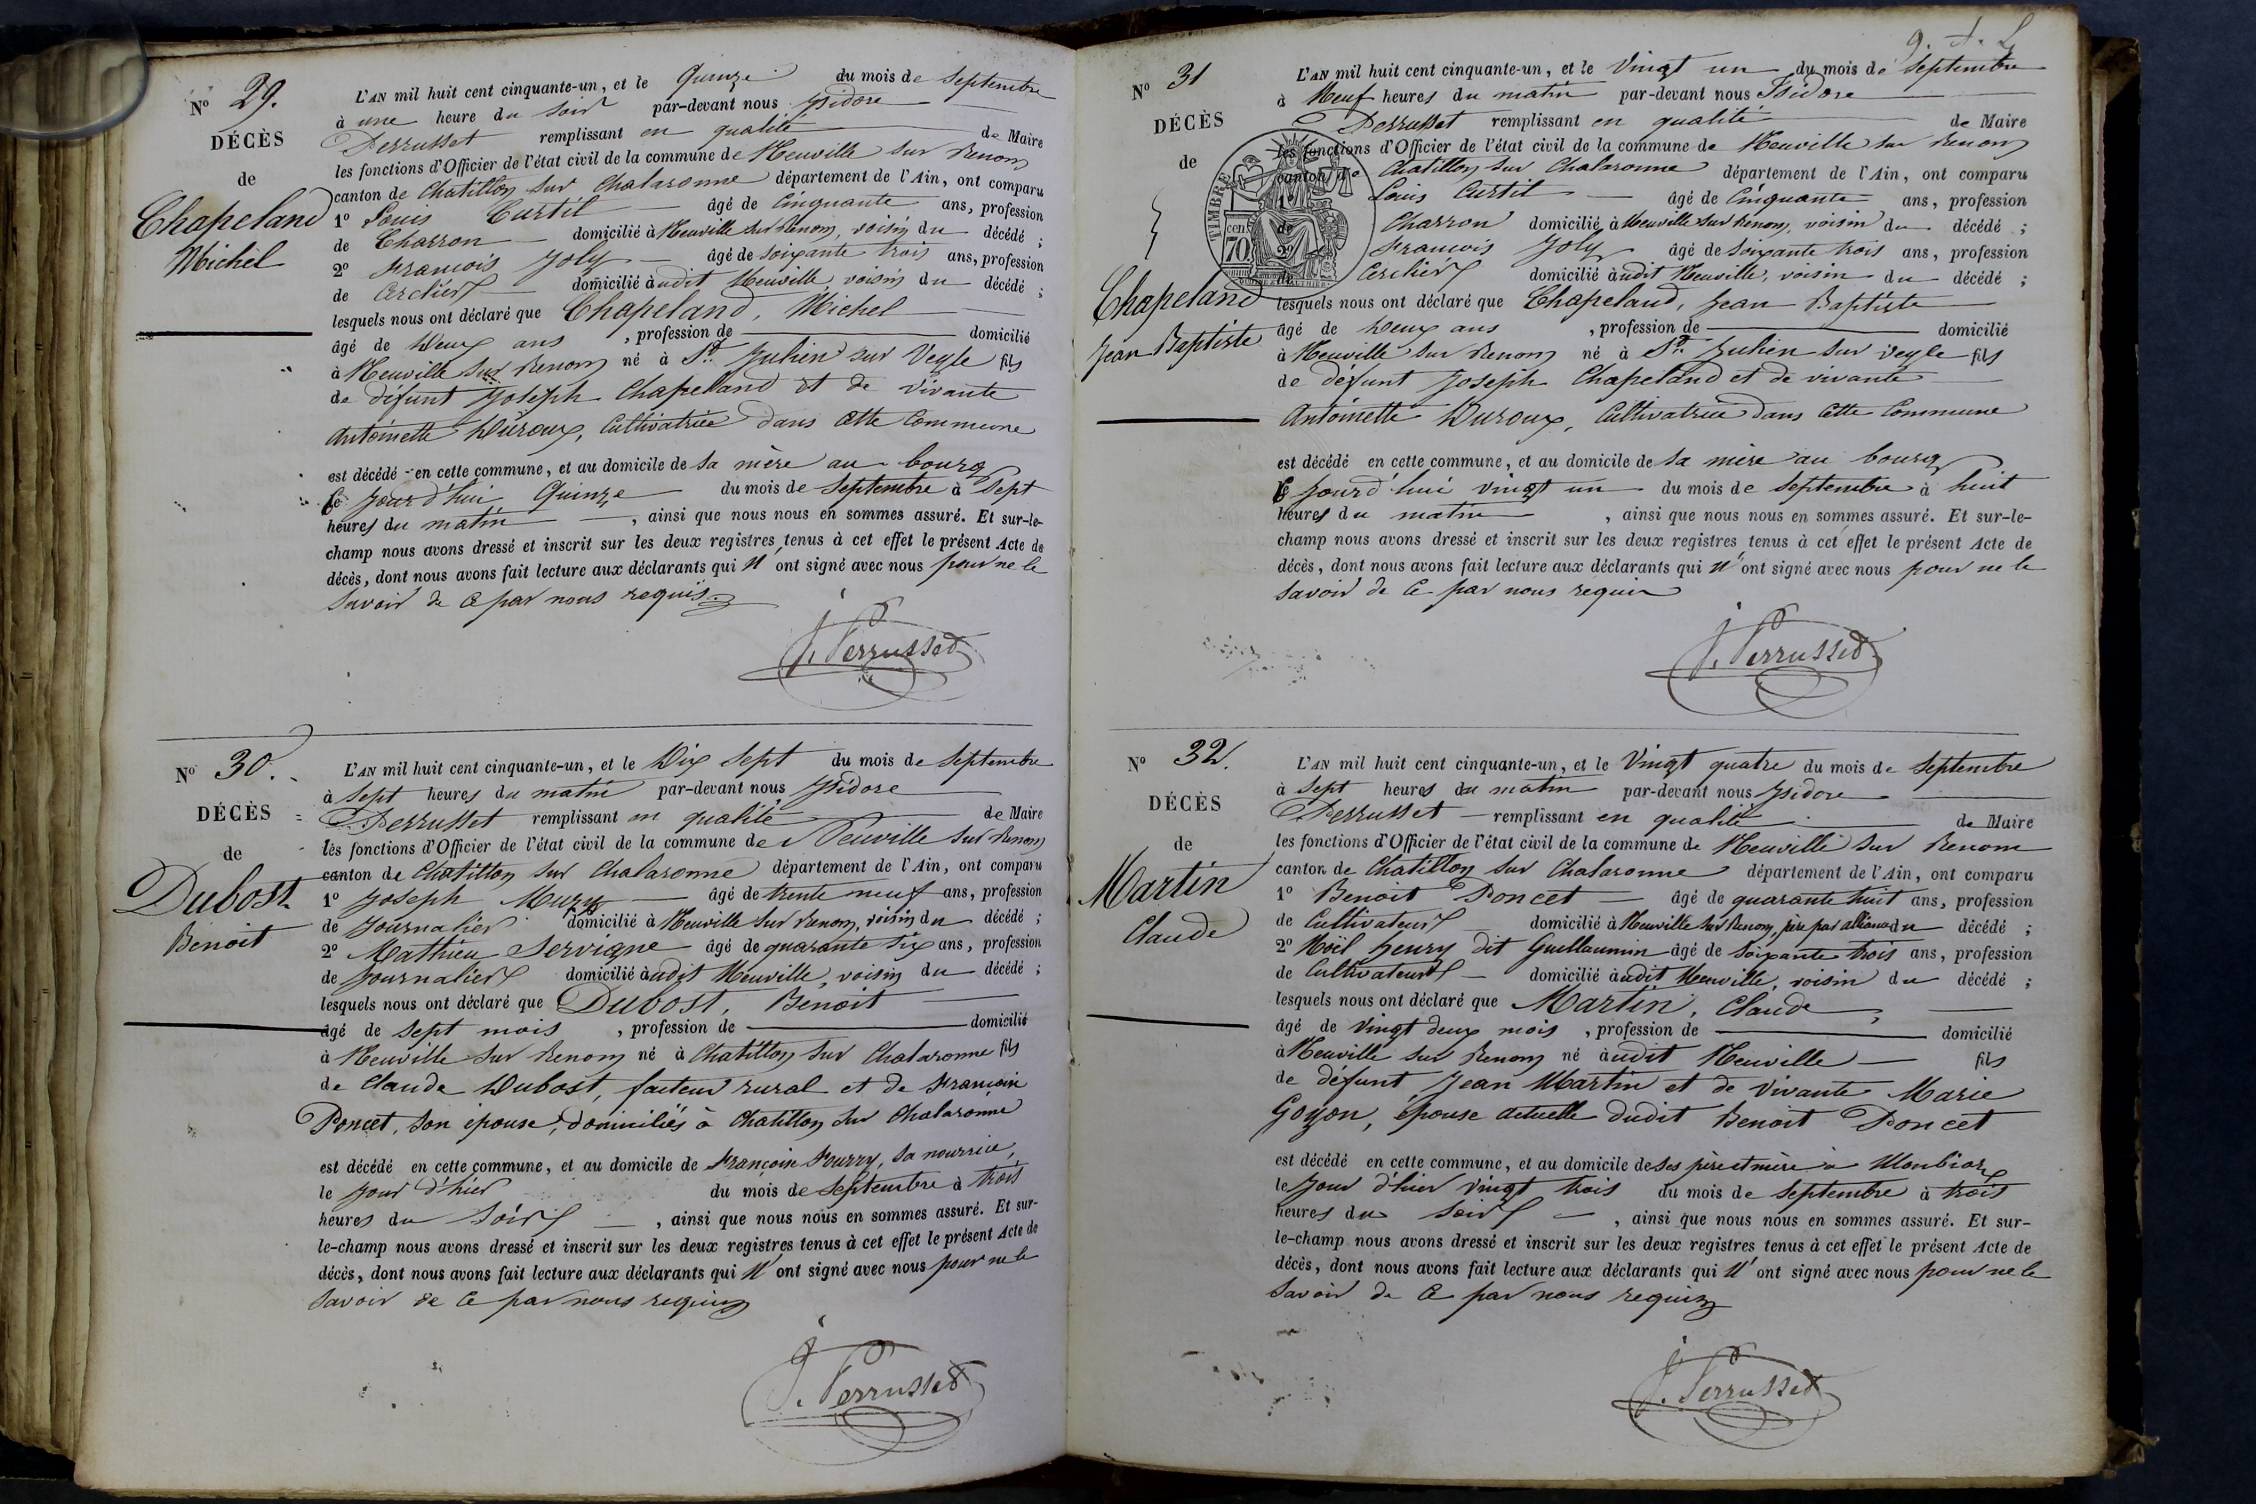 Nº 29.
DÉCÈS
de
Chapeland
Michel
L'AN mil huit cent cinquante-un, et le Quinze du mois de Septembre
à une heure du soir par-devant nous Isidore
Perrusset remplissant en qualité de Maire
les fonctions d'Officier de l'état civil de la commune de Neuville sur Renom
canton de Chatillon sur Chalaronne département de l'Ain, ont comparu
1º Louis Curtil âgé de Cinquante ans, profession
de Charron domicilié à Neuville sur Renom, voisin du décédé ;
2º francois Joly âgé de soixante trois ans, profession
de Cerclier domicilié audit Neuville, voisin du décédé ;
lesquels nous ont déclaré que Chapeland, Michel
âgé de Deux ans , profession de domicilié
à Neuville sur Renom né à St. Julien sur Veyle fils
de défunt Joseph Chapeland et de vivante
Antoinette Duroux, Cultivatrice dans cette Commune
est décédé en cette commune, et au domicile de sa mère au bourg
Ce jourd'hui Quinze du mois de Septembre à Sept
heures du matin , ainsi que nous nous en sommes assuré. Et sur-le-
champ nous avons dressé et inscrit sur les deux registres tenus à cet effet le présent Acte de
décès, dont nous avons fait lecture aux déclarants qui n' ont signé avec nous pour ne le
savoir de ce par nous requis.
J. Perrusset
Nº 30.
DÉCÈS
de
Dubost
Benoit
L'AN mil huit cent cinquante-un, et le Dix sept du mois de Septembre
à Sept heures du matin par-devant nous Isidore
Perrusset remplissant en qualité de Maire
les fonctions d'Officier de l'état civil de la commune de Neuville sur Renom
canton de Chatillon sur Chalaronne département de l'Ain, ont comparu
1º Joseph Muzy âgé de trente neuf ans, profession
de Journalier domicilié à Neuville sur Renom, voisin du décédé ;
2º Mathieu Servigne âgé de quarante six ans, profession
de Journalier domicilié audit Neuville, voisin du décédé ;
lesquels nous ont déclaré que Dubost, Benoit
âgé de sept mois , profession de domicilié
à Neuville sur Renom né à Chatillon sur Chalaronne fils
de Claude Dubost, facteur rural et de francoise
Poncet, son épouse, domiciliés à Chatillon sur Chalaronne
est décédé en cette commune, et au domicile de françoise Pourry, sa nourrice,
le jour d'hier du mois de Septembre à trois
heures du soir , ainsi que nous nous en sommes assuré. Et sur-
le-champ nous avons dressé et inscrit sur les deux registres tenus à cet effet le présent Acte de
décès, dont nous avons fait lecture aux déclarants qui n' ont signé avec nous pour ne le
savoir de ce par nous requis
J. Perrusset
Nº 31
DÉCÈS
de
Chapeland
Jean Baptiste
TIMBRE
cent 70
L'AN mil huit cent cinquante-un, et le Vingt un du mois de Septembre
à Neuf heures du matin par-devant nous Isidore
Perrusset remplissant en qualité de Maire
les fonctions d'Officier de l'état civil de la commune de Neuville sur Renom
canton de Chatillon sur Chalaronne département de l'Ain, ont comparu
Louis Curtil âgé de Cinquante ans, profession
de Charron domicilié à Neuville sur Renom, voisin du décédé ;
2º francois Joly âgé de soixante trois ans, profession
de Cerclier domicilié audit Neuville, voisin du décédé ;
lesquels nous ont déclaré que Chapeland, Jean Baptiste
âgé de Deux ans , profession de domicilié
à Neuville sur Renom né à St. Julien sur Veyle fils
de défunt Joseph Chapeland et de vivante
Antoinette Duroux, Cultivatrice dans cette Commune
est décédé en cette commune, et au domicile de sa mère au bourg
Ce jourd'hui vingt un du mois de Septembre à huit
heures du matin , ainsi que nous nous en sommes assuré. Et sur-le-
champ nous avons dressé et inscrit sur les deux registres tenus à cet effet le présent Acte de
décès, dont nous avons fait lecture aux déclarants qui n' ont signé avec nous pour ne le
savoir de ce par nous requis
J. Perrusset
Nº 32.
DÉCÈS
de
Martin
Claude
L'AN mil huit cent cinquante-un, et le Vingt quatre du mois de Septembre
à Sept heures du matin par-devant nous Isidore
Perrusset remplissant en qualité de Maire
les fonctions d'Officier de l'état civil de la commune de Neuville sur Renom
canton de Chatillon sur Chalaronne département de l'Ain, ont comparu
1º Benoit Poncet âgé de quarante huit ans, profession
de Cultivateur domicilié à Neuville sur Renom, père par alliance du décédé ;
2º Noël henry dit Guillaumin âgé de soixante trois ans, profession
de Cultivateur domicilié audit Neuville, voisin du décédé ;
lesquels nous ont déclaré que Martin, Claude
âgé de vingt deux mois , profession de domicilié
à Neuville sur Renom né audit Neuville fils
de défunt Jean Martin et de vivante Marie
Goyon, épouse actuelle dudit Benoit Poncet
est décédé en cette commune, et au domicile de ses père et mère à
le jour d'hier vingt trois du mois de Septembre à trois
heures du soir , ainsi que nous nous en sommes assuré. Et sur-
le-champ nous avons dressé et inscrit sur les deux registres tenus à cet effet le présent Acte de
décès, dont nous avons fait lecture aux déclarants qui n' ont signé avec nous pour ne le
savoir de ce par nous requis
J. Perrusset